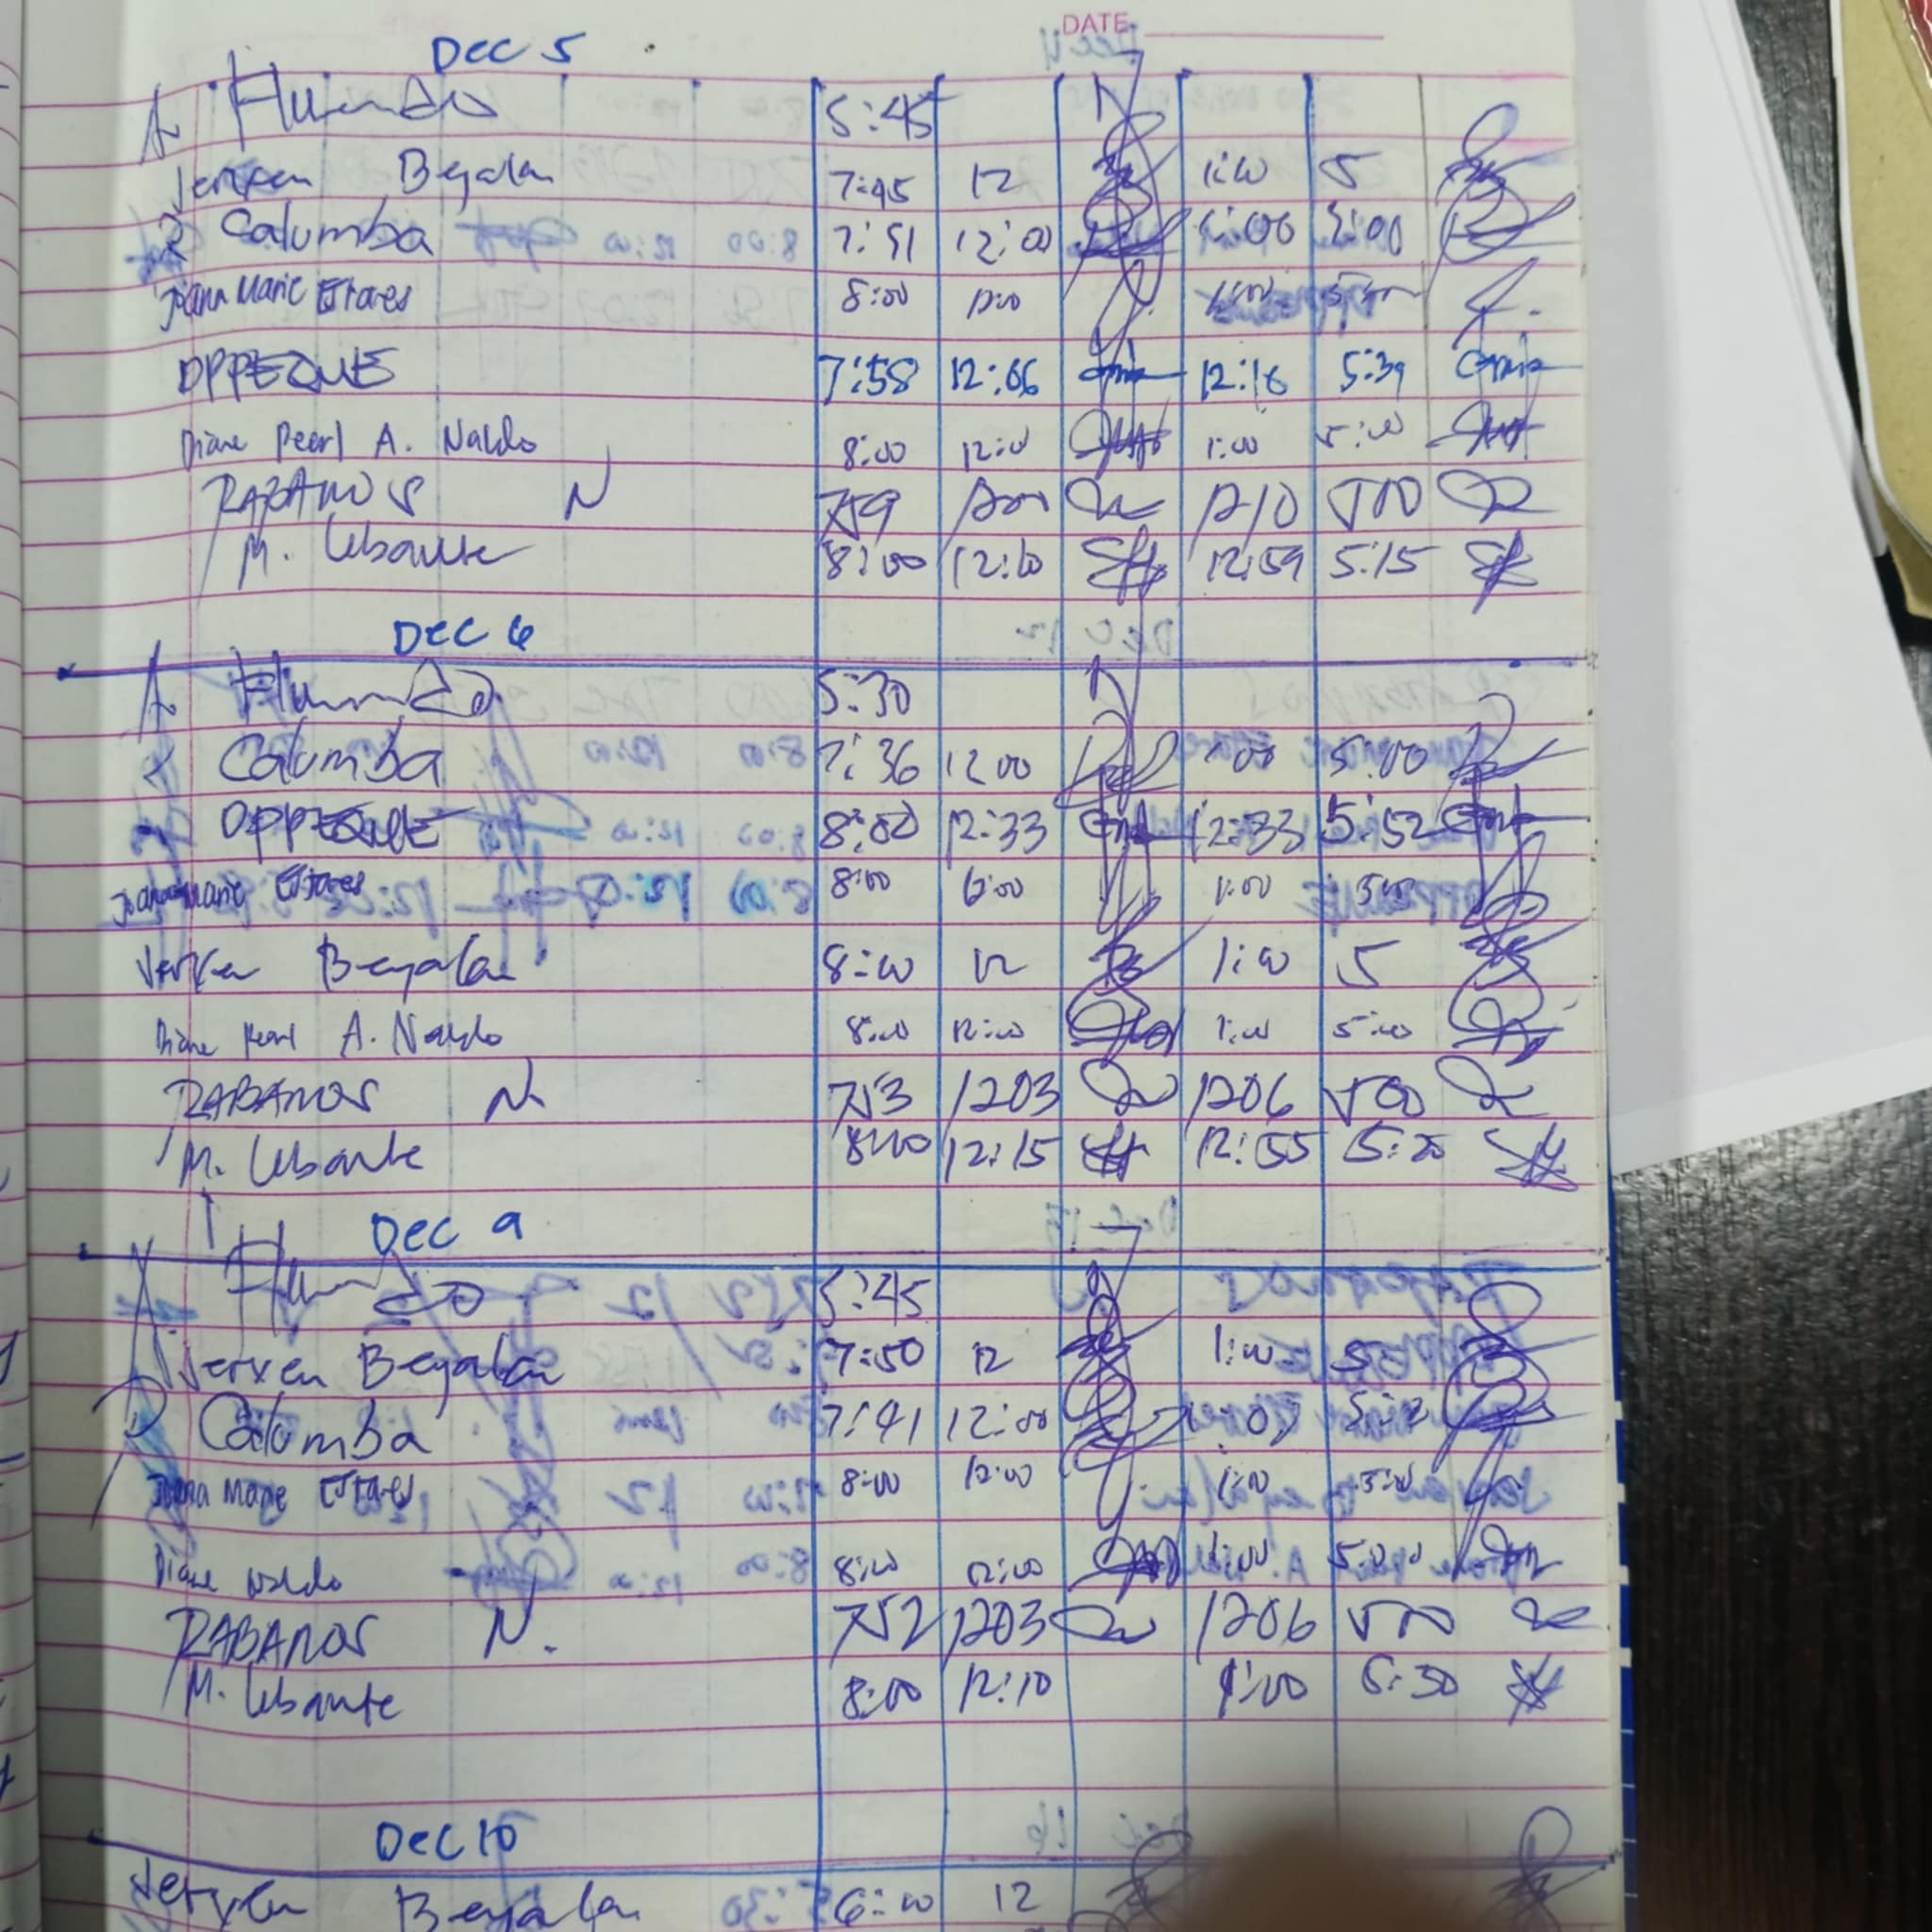 DATE
DEC 5
5:45
Jerxen Beyalan 7:45 12 1:00 5
Calumba 7:41 12:00 1:00 5:00
Joana Marie Estares 8:00 12:00 1:00
OPPEQUE 7:58 12:06 12:16 5:39
Diane Pearl A. Naldo 8:00 12:00 1:00 5:00
RABANOS N 759 1200 1210 500
M. Lebante 8:00 12:10 12:59 5:15
DEC 6
5:30
Calumba 7:36 1200 1:00 5:00
OPPEQUE 8:00 12:33 12:33 5:52
Joana Marie Estares 8:00 12:00 1:00 5:00
Jerxen Beyalan 8:00 12 1:00 5
Diane Pearl A. Naldo 8:00 12:00 1:00 5:00
RABANOS N. 753 1203 1206 500
M. Lebante 8:00 12:15 12:55 5:20
DEC 9
5:45
Jerxen Beyalan 7:50 12 1:00 5
Calumba 7:41 12:00
Joana Marie Estares 8:00 12:00 1:00 5:00
Diane Naldo 8:00 12:00 1:00 5:00
RABANOS N. 752 1203 1206 500
M. Lebante 8:00 12:10 1:00
DEC 10
Jerxen Beyalan 6:00 12